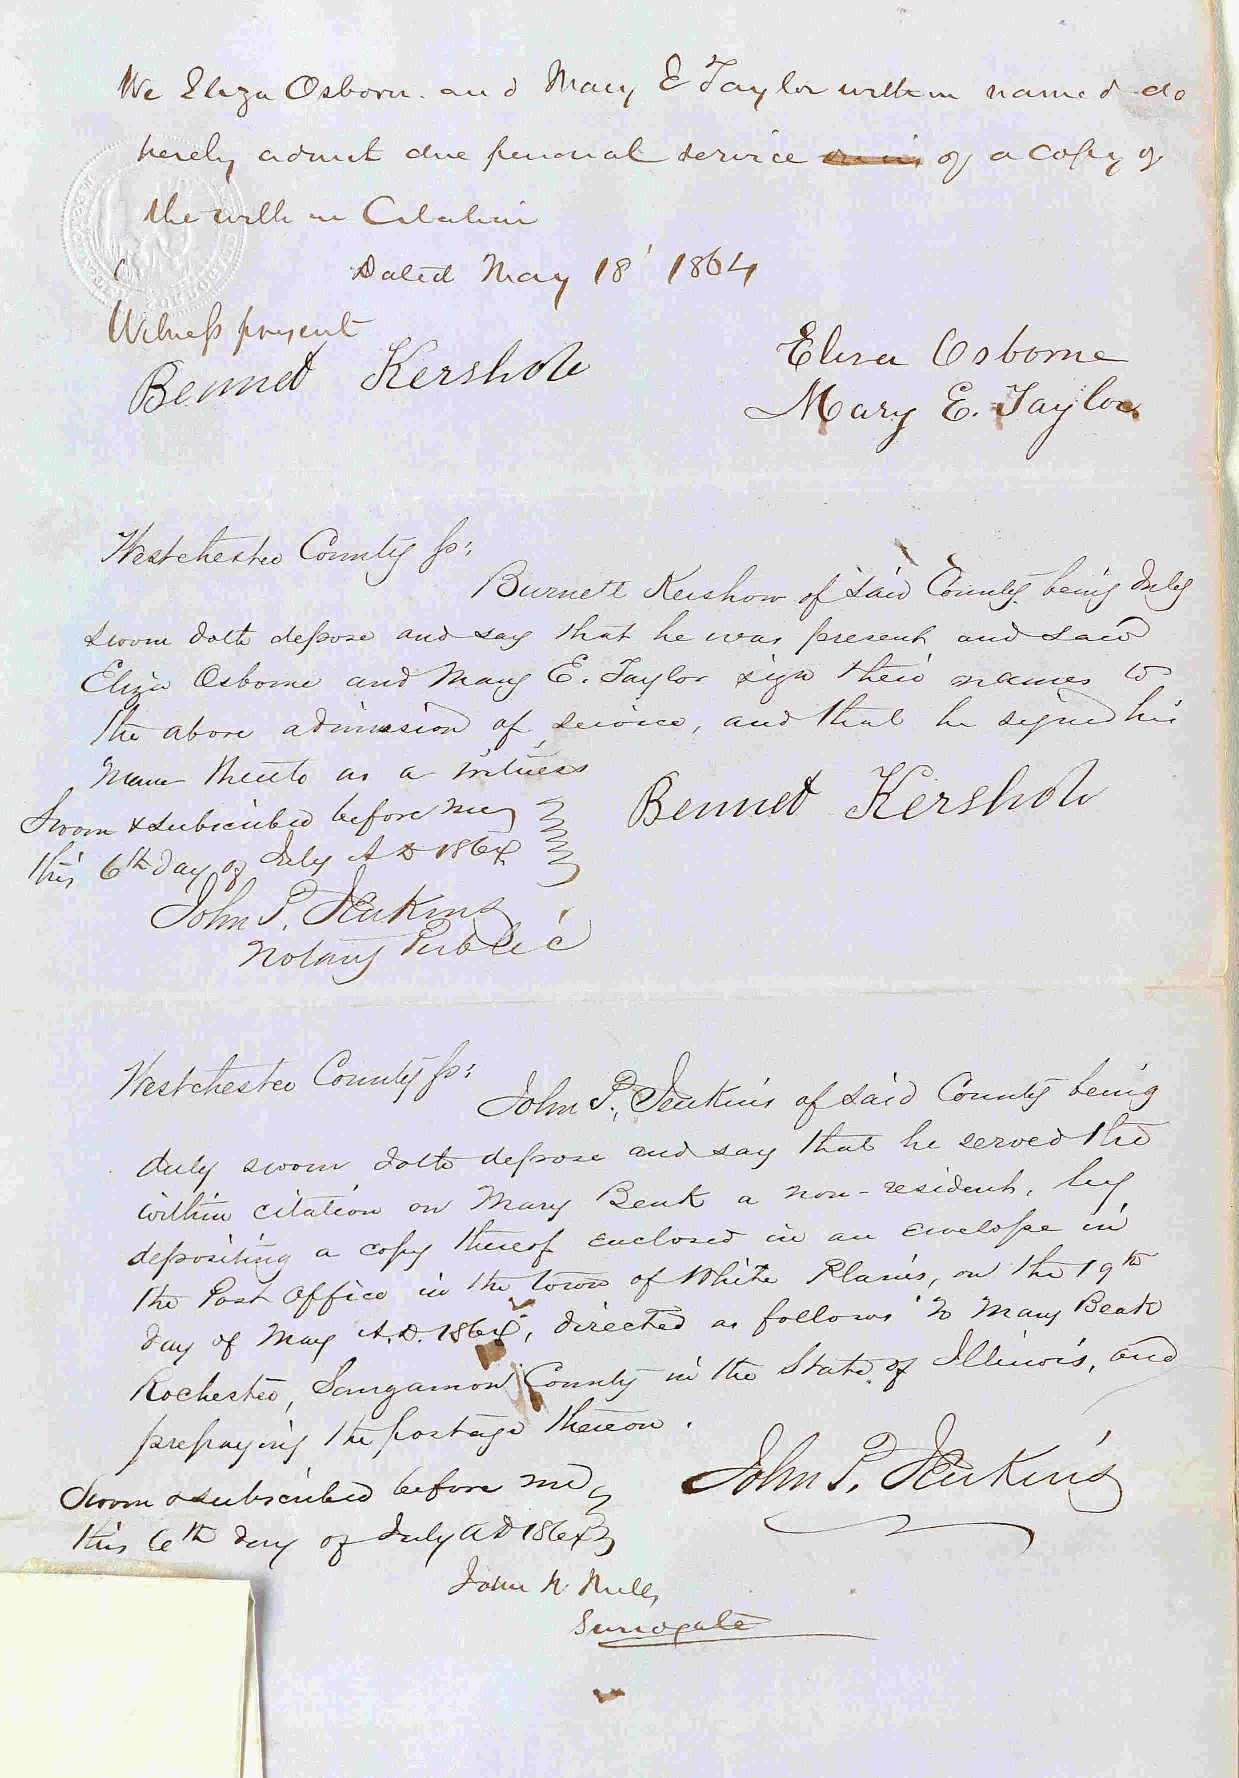 We Eliza Osborn and Mary E Taylor within named do
hereby admit due personal service of a copy of
the within Citation
Dated May 18' 1864
Witness present
Bennet Kershow
Eliza Osborne
Mary E. Taylor
Westchester County ss:
Burnett Kershow of said County being duly
sworn doth depose and say that he was present and saw
Eliza Osborne and Mary E. Taylor sign their names to
the above admission of service, and that he signed his
name thereto as a witness
Sworn & subscribed before me
this 6th day of July A D 1864
Bennet Kershow
John P. Jenkins
Notary Public
Westchester County ss:
John P. Jenkins of said County being
duly sworn doth depose and say that he served the
within citation on Mary Beak a non-resident, by
depositing a copy thereof enclosed in an envelope in
the Post Office in the town of White Plains, on the 19th
day of May A.D. 1864, directed as follows to Mary Beak
Rochester, Sangamon County in the State of Illinois, and
prepaying the postage thereon.
Sworn & subscribed before me
this 6th day of July A D 1864
John P. Jenkins
John W. Mills
Surrogate